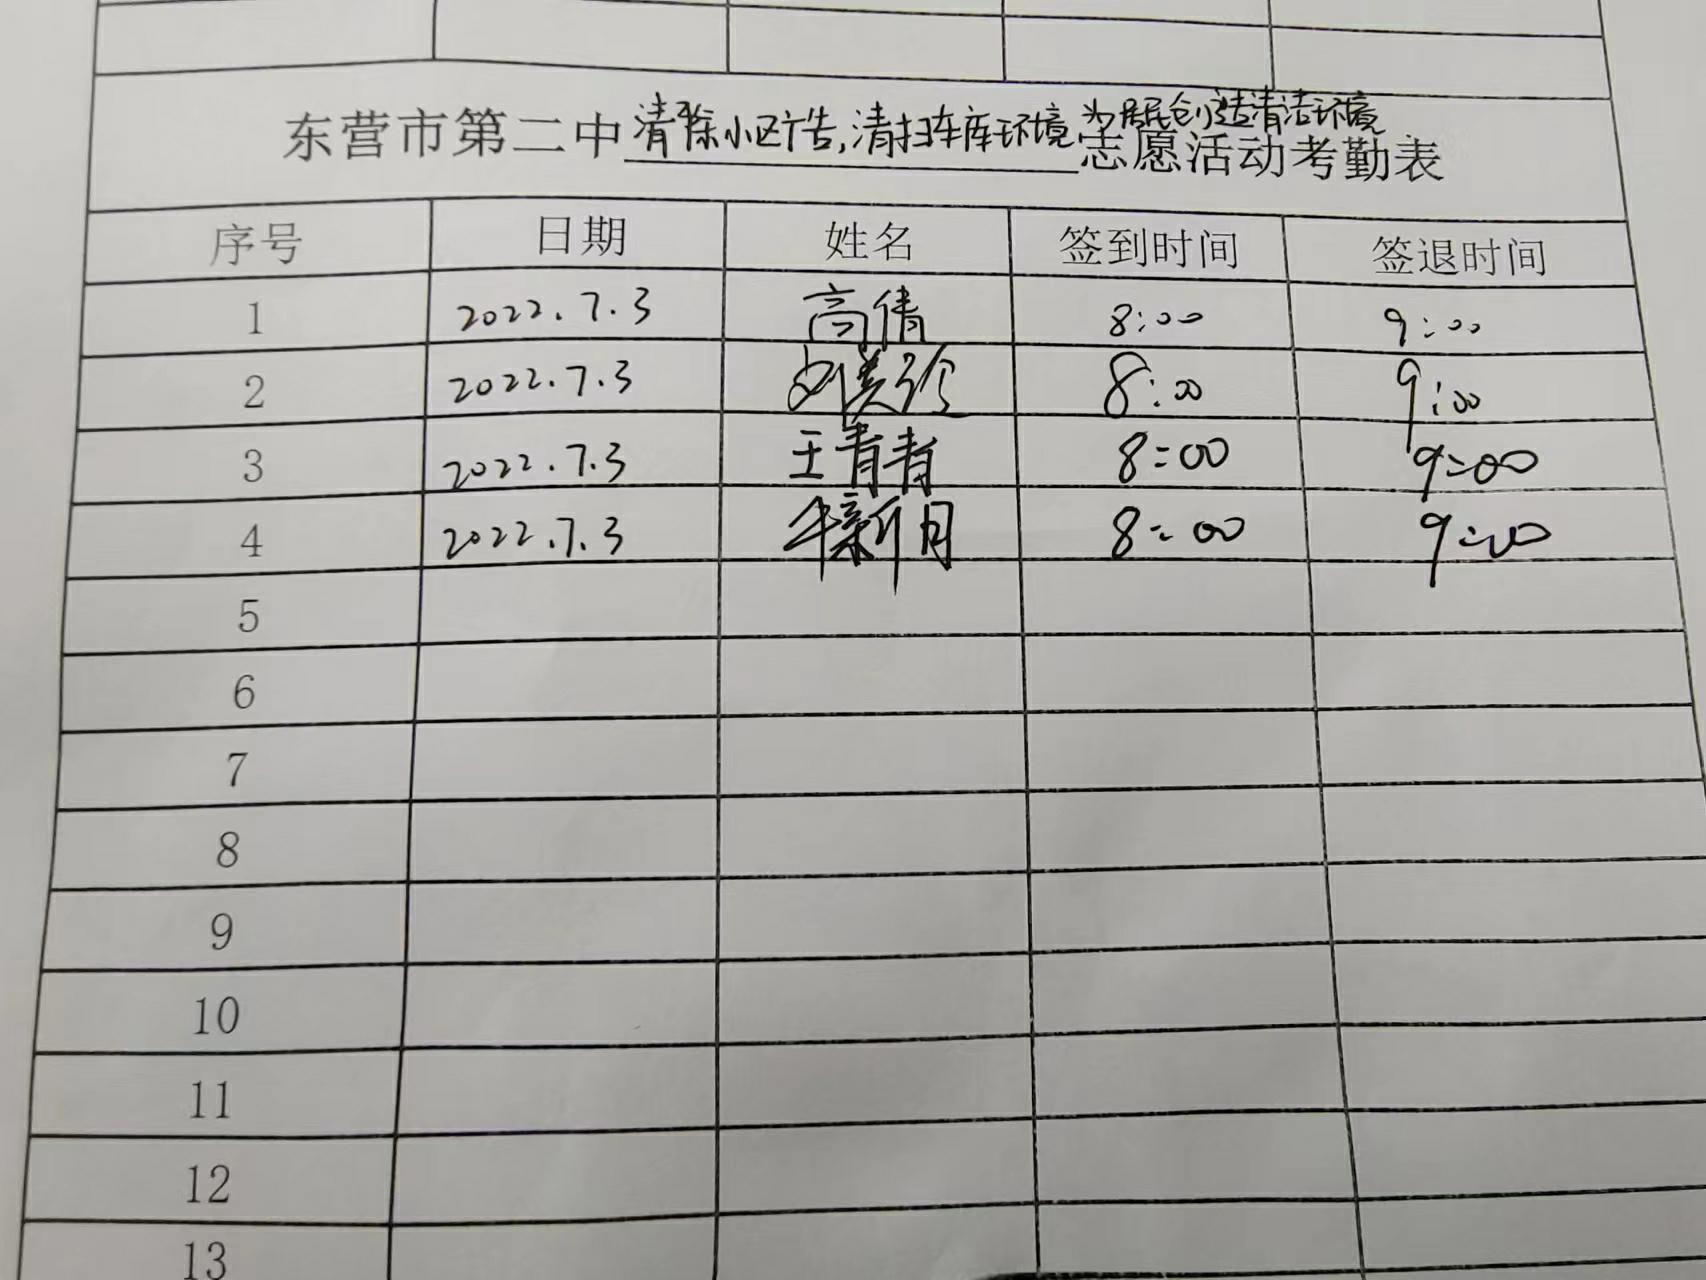 东营市第二中清除小区广告,清扫车库环境为居民创造清洁环境志愿活动考勤表
序号 日期 姓名 签到时间 签退时间
1 2022.7.3 高倩 8:00 9:00
2 2022.7.3 刘美玲 8:00 9:00
3 2022.7.3 王青青 8:00 9:00
4 2022.7.3 牛新月 8:00 9:00
5
6
7
8
9
10
11
12
13